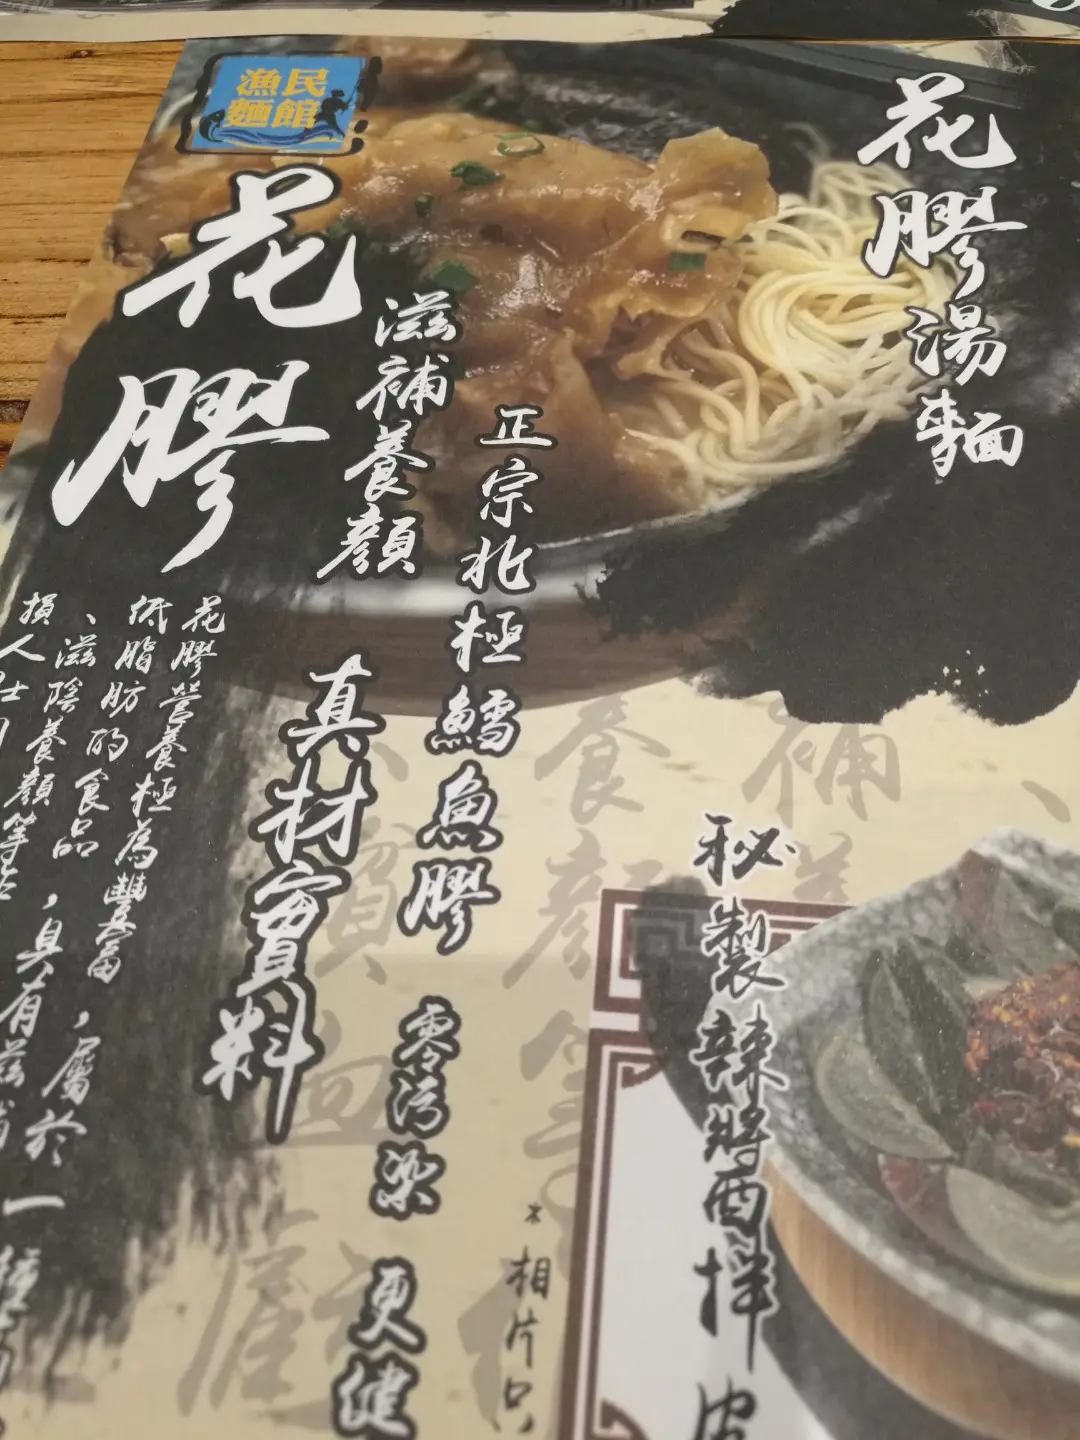 漁民
麵館
花膠湯麵
花膠
滋補養顏
正宗北極鱈魚膠 零污染 更健
真材實料
花膠營養極為豐富，屬於
低脂肪的食品，具有滋補
、滋陰養顏等
損人士
秘製辣醬拌皮
*相片只